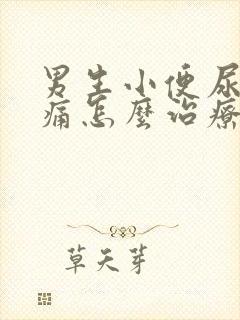 男生小便尿
痛怎麼治療
草天芽